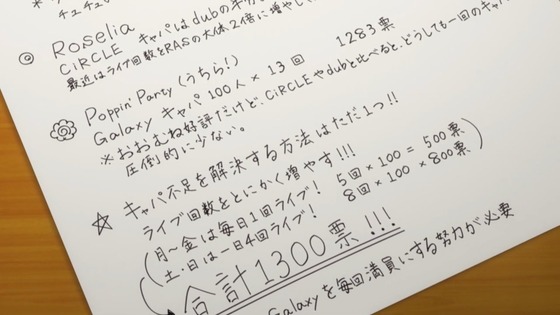 チュチュ
Roselia
CiRCLE キャパはdubの半分
最近はライブ回数をRASの大体2倍に増やし
Poppin'Party (うちら!)
Galaxy キャパ 100人 × 13回 1283票
※おおむね好評だけど、CiRCLEやdubと比べると、どうしても一回のキャパ
圧倒的に少ない。
☆ キャパ不足を解決する方法はただ1つ!!
ライブ回数をとにかく増やす!!!
(月〜金は毎日1回ライブ! 5回×100 = 500票
土・日は一日4回ライブ! 8回×100 × 800票)
合計1300票!!!
Galaxyを毎回満員にする努力が必要